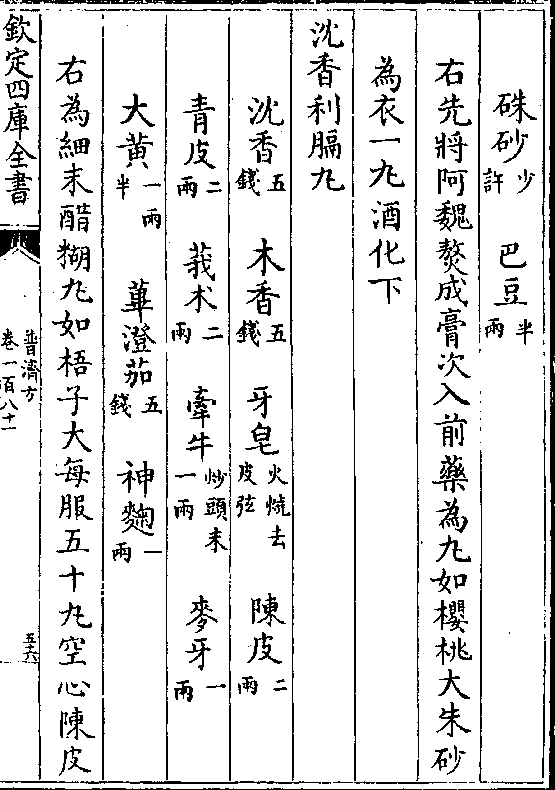 硃砂少許 巴豆半兩
右先將阿魏熬成膏次入前藥為丸如櫻桃大朱砂
為衣一丸酒化下
沈香利膈丸
沈香五錢 木香五錢 牙皂火燒去皮弦 陳皮二兩
青皮二兩 莪朮二兩 牽牛炒頭末一兩 麥牙一兩
大黄一兩半 蓽澄茄五錢 神麴一兩
右為細末醋糊丸如梧子大每服五十丸空心陳皮
欽定四庫全書
普濟方
卷一百八十一
五六